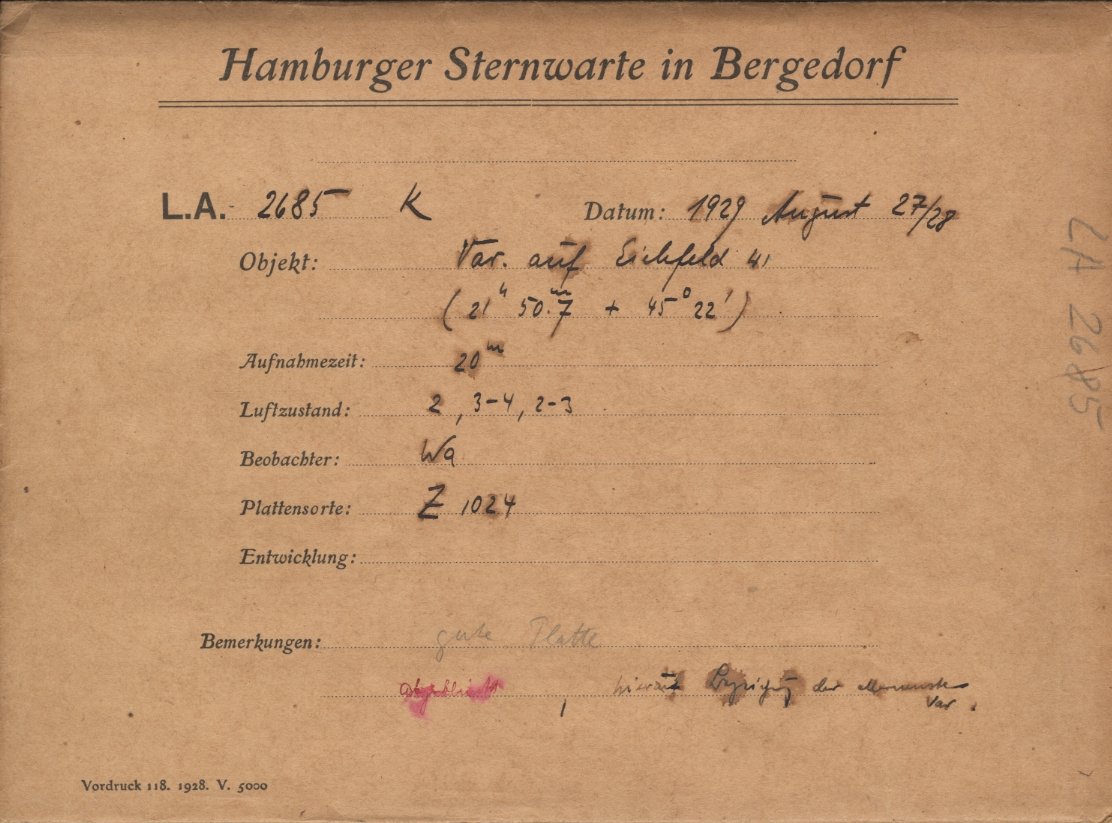 Hamburger Sternwarte in Bergedorf
L.A. 2685 K Datum: 1929 August 27/28
Objekt: Var. auf Eichfeld 41
(21ʰ 50ᵐ.7 + 45° 22')
Aufnahmezeit: 20ᵐ
Luftzustand: 2, 3-4, 2-3
Beobachter: Wa
Plattensorte: Z 1024
Entwicklung:
Bemerkungen: gute Platte
hierauf der Var.
Vordruck 118. 1928. V. 5000
LA 2685